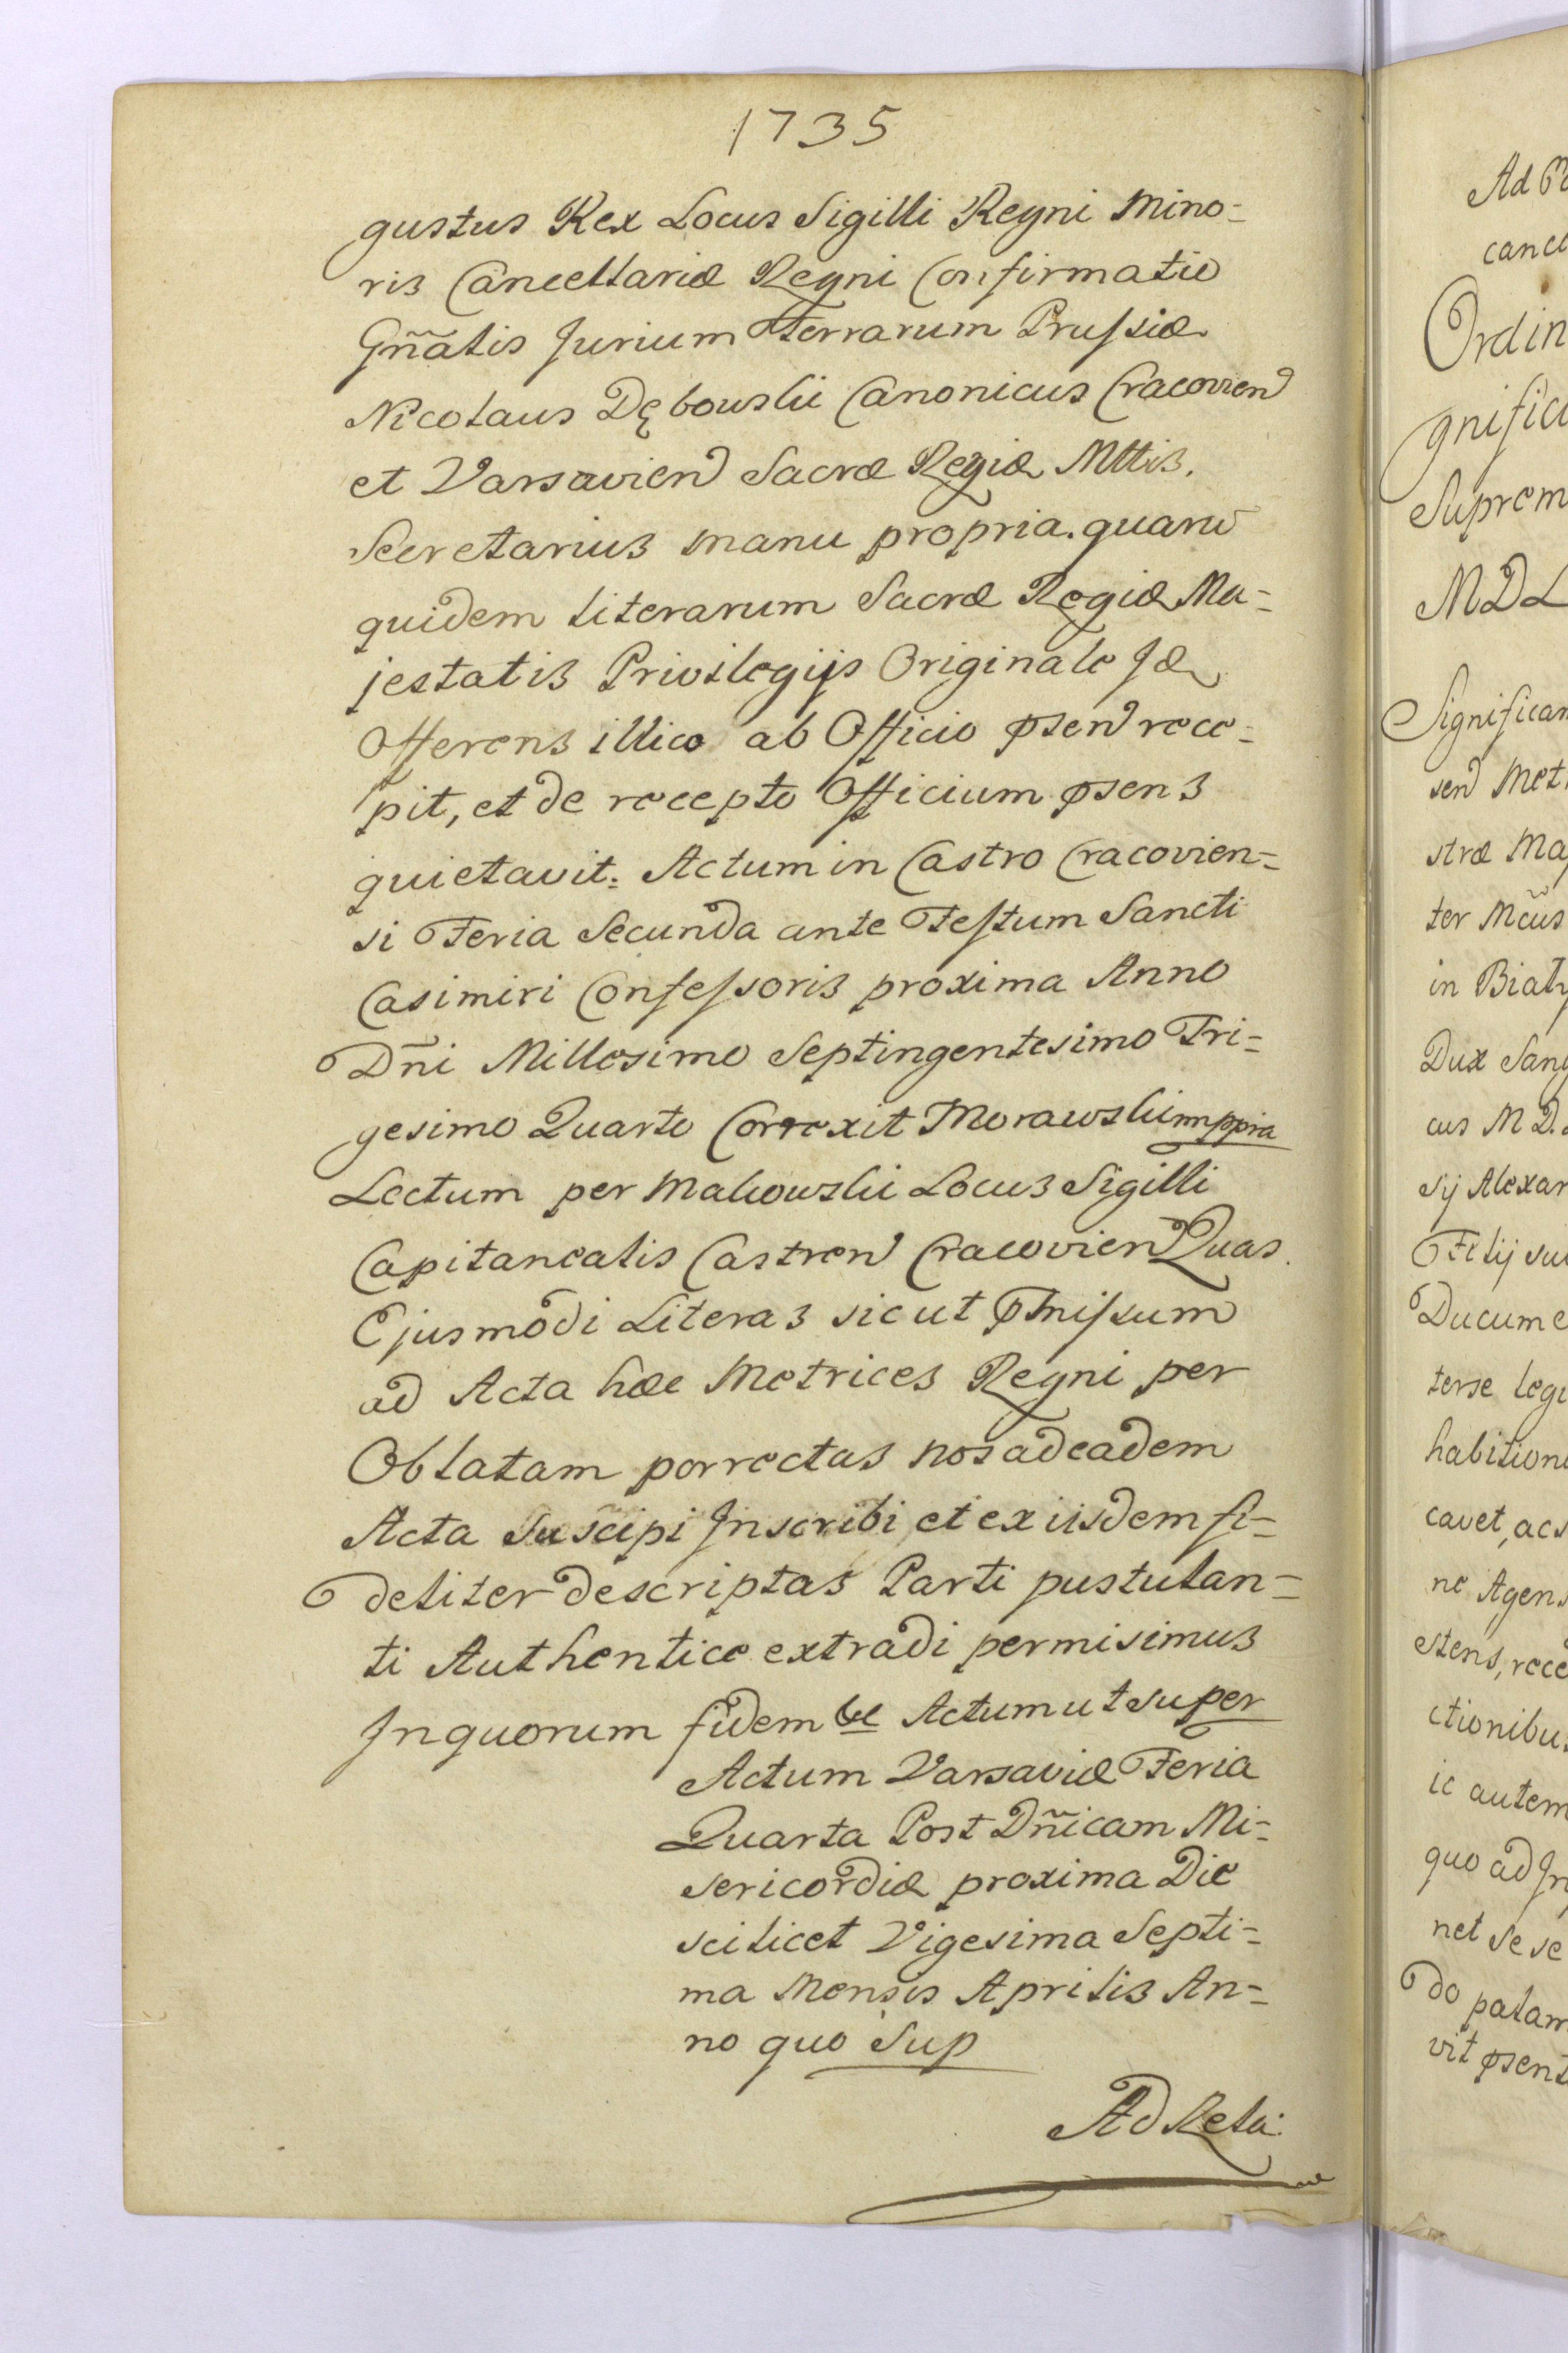 1735
gustus Rex Locus Sigilli Regni Mino=
ris Cancellariæ Regni Confirmatio
Gñalis Jurium Terrarum Prussiæ
Nicolaus Dębowski Canonicus Cracovien
et Varsavien Sacræ Regiæ Mttis.
Secretarius manu propria. quarũ
quidem literarum Sacræ Regiæ Ma=
jestatis Privilegijs Originale Jdẽ
Offerens illico ab Officio psen rece=
pit, et de recepto Officium psens
quietavit. Actum in Castro Cracovien=
si Feria Secunda ante Festum Sancti
Casimiri Confessoris proxima Anno
Dñi Millesimo Septingentesimo Tri=
gesimo Quarto Correxit Morawski mppria
Lectum per Makowski Locus Sigilli
Capitanealis Castren Cracovien Quas
Ejusmodi Literas sicut pmissum
ad Acta hæc Metrices Regni per
Oblatam porrectas nos ad eadem
Acta Suscipi Inscribi, et ex iisdem fi=
deliter descriptas Parti pustulan=
ti Authentice extradi permisimus
In quorum fidem Actum ut super
Actum Varsaviæ Feria
Quarta Post Dñicam Mi=
sericordiæ proxima Die
scilicet Vigesima Septi=
ma Mensis Aprilis An=
no quo Sup
Ad Rela:
Ad
cance
Ordin
gnifici
Suprem
MDL
Significam
sen Met
stræ Maj
ter Mcus
in Biał
Dux Sang
cus M D.
sij Alexan
Filij su
Ducum e
terse leg
habition
cavet, ac
ne Agens
stens, rece
ctionibu
ic autem
quo ad In
net se se
do palam
vit psent